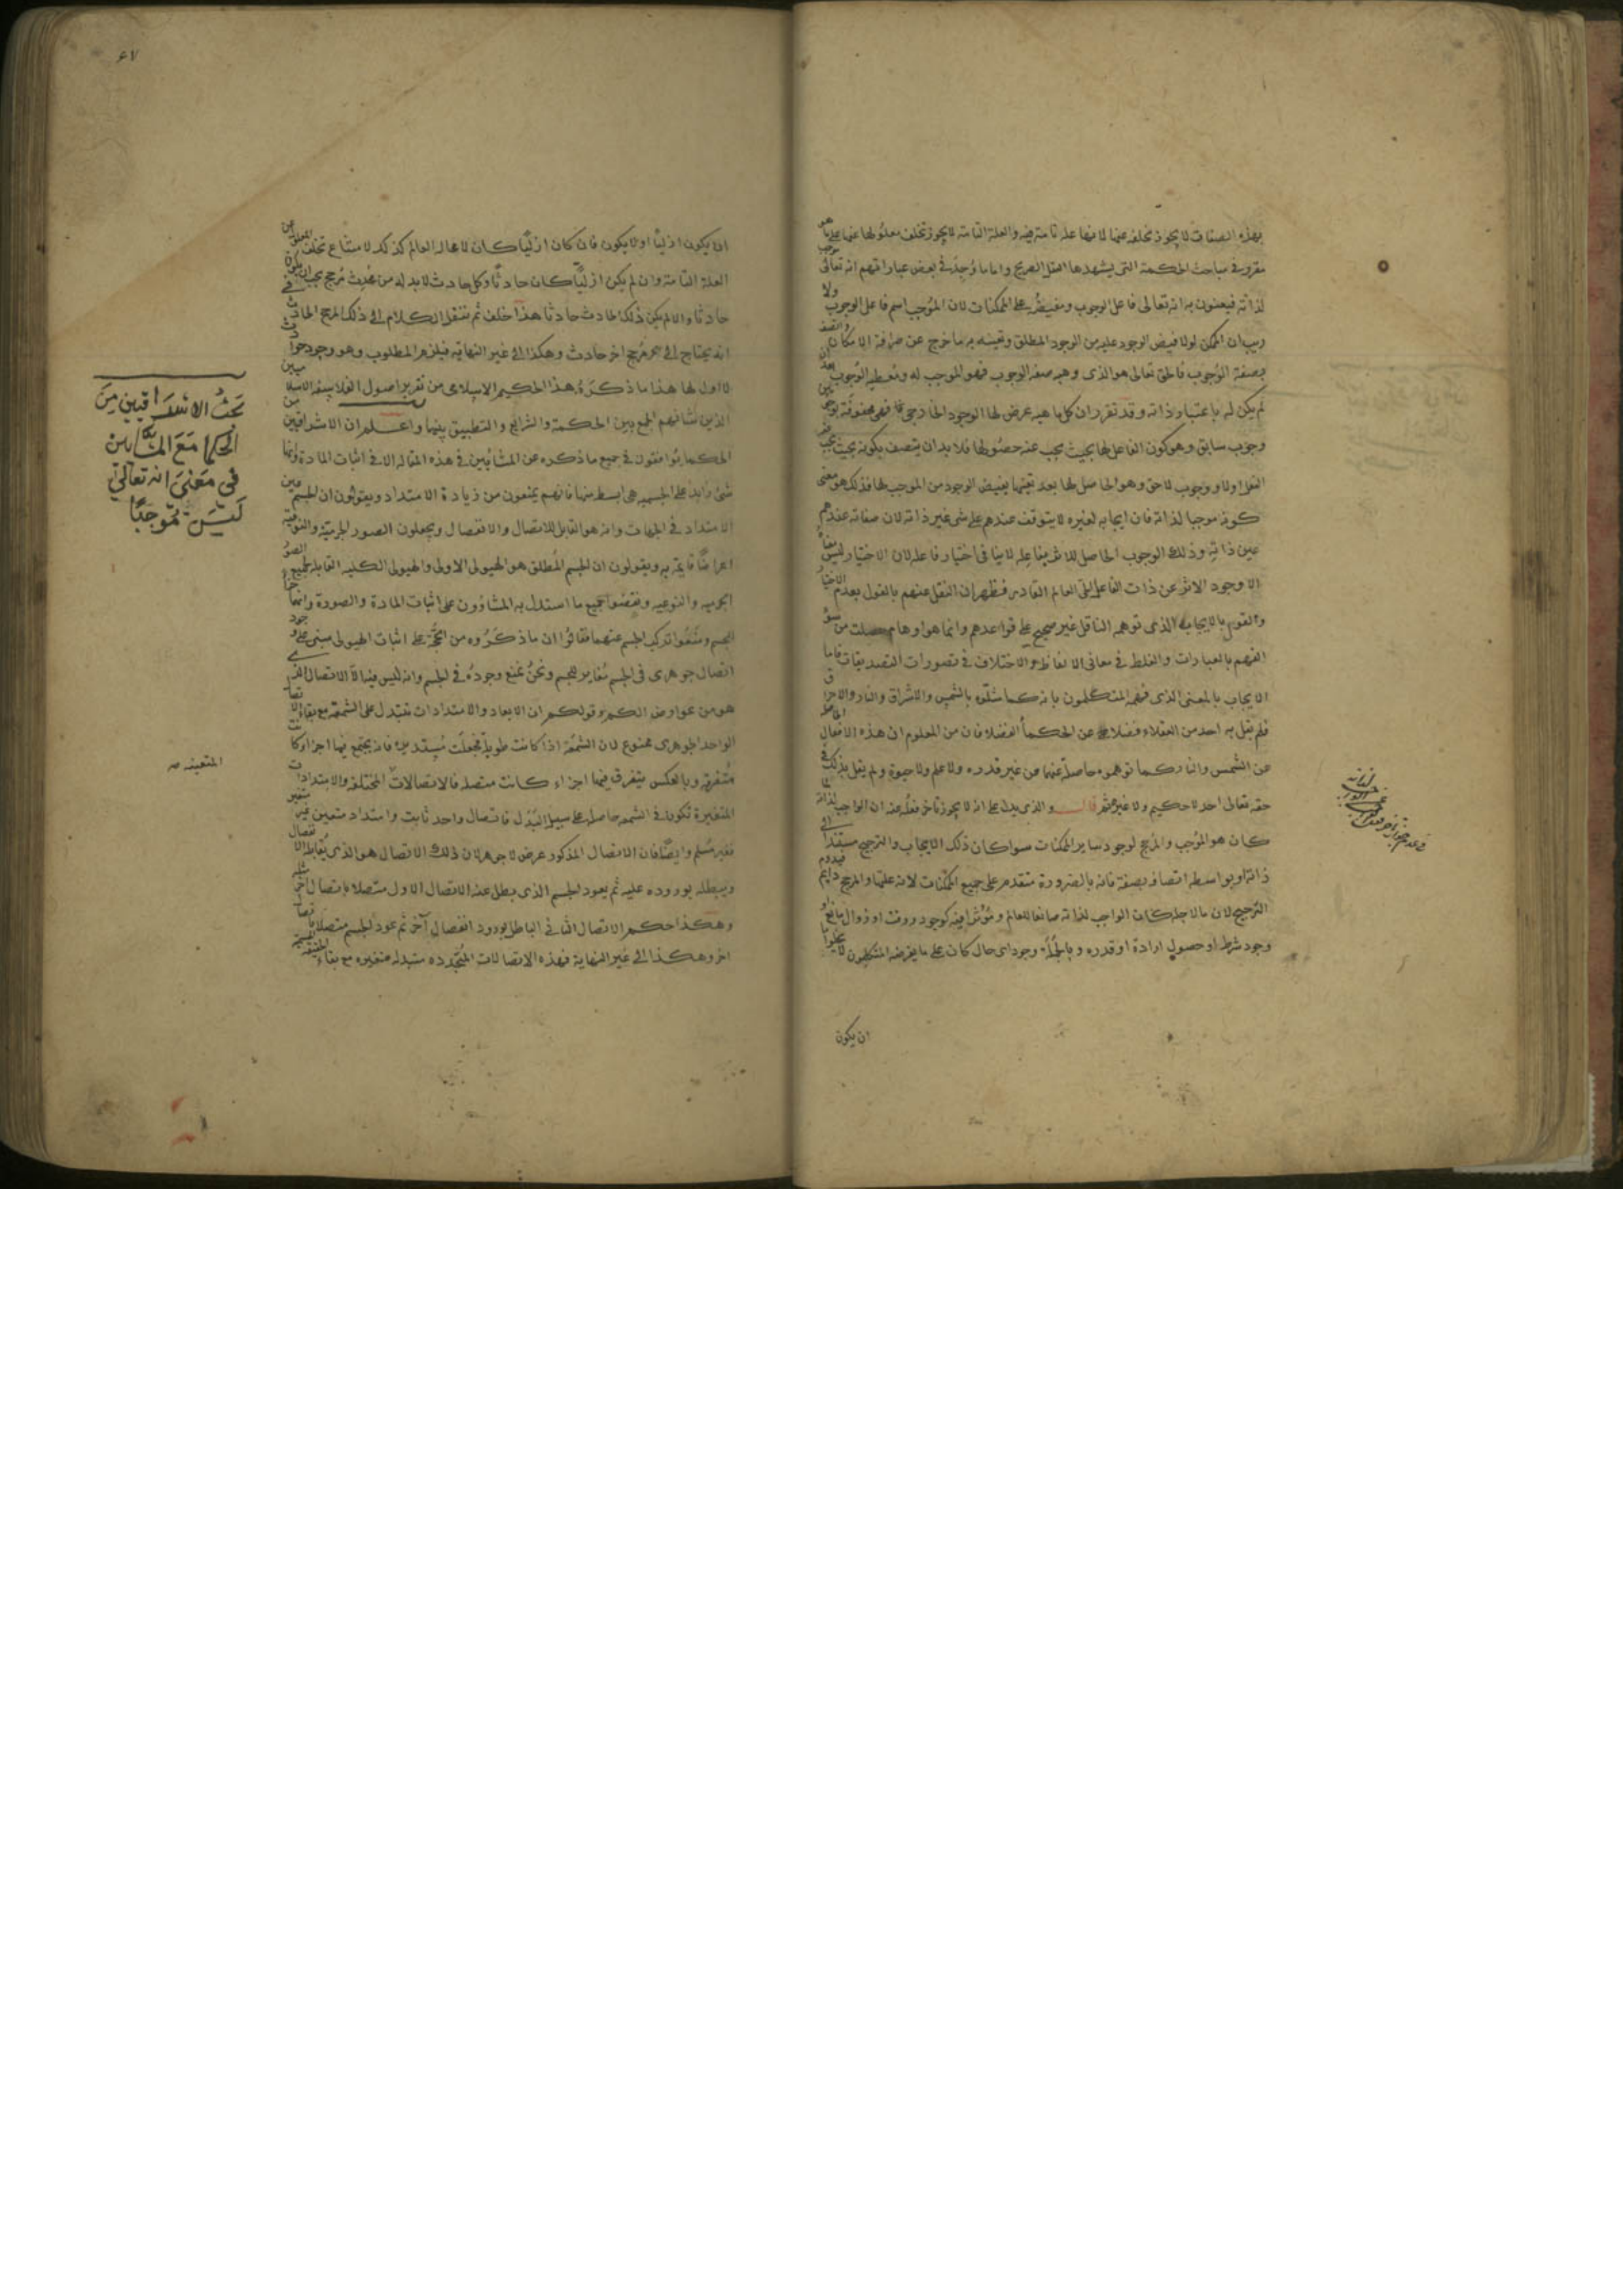 بهذه الصفات لا يجوز تخلفه عنها لانها علة تامة فيه والعلة التامة لا يجوز تخلف معلولها عنها على ما هو
مقرر في مباحث الحكمة التي يشهد بها العقل الصريح واما ما وُجد في بعض عباراتهم انه تعالى موجب
لذاته فيعنون به انه تعالى فاعل الوجوب ومفيضُه على الممكنات لان المُوجب اسم فاعل الوجوب ولا
ريب ان الممكن لولا فيض الوجود عليه من الوجود المطلق وتعينه به ما خرج عن صرافة الامكان واتصف
بصفة الوُجوب فالحق تعالى هو الذي وهبه صفة الوجوب فهو الموجب له ومُعطيه الوُجوب بعد ان
لم يكن له باعتبار ذاته وقد تقرر ان كل ماهية عرض لها الوجود الخارجي فهي محفوفة بوجوبين
وجوب سابق وهو كون الفاعل لها بحيث يجب عنه حصُولها فلا بد ان يتصف بكونه بحيث يجب
الفعل اولا ووجوب لاحق وهو الحاصل لها بعد تعينها بفيض الوجود من الموجب لها فذلك هو معنى
كونه موجبا لذاته فان ايجابه لغيره لا يتوقف عندهم على شي غير ذاته لان صفاته عندهم
عين ذاتِه وذلك الوجوب الحاصل للاثر بفاعله لا ينافي اختيار فاعله لان الاختيار ليس
الا وجود الاثر عن ذات الفاعل الحي العالم القادر فظهر ان النقل عنهم بالقول بعدم الاختيار
والقول بالايجاب الذي توهمه الناقل غير صحيح على قواعدهم وانما هو اوهام حصلت من سوء
الفهم بالعبارات والغلط في معاني الالفاظ والاختلاف في تصورات التصديقات فاما
الايجاب بالمعنى الذي فهمه المتكلمون بانه كما مثلوه بالشمس والاشراق والنار والاحراق
فلم يقل به احد من العقلاء فضلا عن الحكماء الفضلا فان من المعلوم ان هذه الافعال
عن الشمس والنار كما توهموه حاصلة عنها من غير قدرة ولا علم ولا حيوة ولم يقل بذلك في
حقه تعالى احد لا حكيم ولا غيره ثم قالـــــت والذي يدل على انه لا يجوز تاخر فعلُه عنه ان الواجب لذاته
كان هو المُوجب والمُرجح لوجود ساير الممكنات سوا كان ذلك الايجاب والترجيح مستندا الى
ذاته او بواسطة اتصافه بصفة فانه بالضرورة متقدم على جميع الممكنات لانه علتها والمرجح دايم فيدوم
الترجيح لان ما لاجله كان الواجب لذاته صانعا للعالم ومُؤثرا فيه كوجود وقت او زوال مانع او
وجود شرط او حصول ارادة او قدرة وبالجُملة وجود اي حال كان على ما يفرضه المتكلمون لا يخلوا اما
ان يكون
٤٧
ان يكون ازليًا او لا يكون فان كان ازليًا كان لا محالة العالم كذلك لامتناع تخلف المعلول عن
العلة التامة وان لم يكن ازليًا كان حادثًا وكل حادث لا بد له من مُحدث مُرجح يجب ان يكون
حادثا والا لم يكن ذلك الحادث حادثا هذا خلف ثم ننقل الكلام الى ذلك المرجح الحادث في
انه يحتاج الى مُرجح اخر حادث وهكذا الى غير النهاية فيلزم المطلوب وهو وجود حوادث
لا اول لها هذا ما ذكرهُ هذا الحكيم الاسلامي من تقرير اصول الفلاسفة الاسلاميين
الذين شانهم الجمع بين الحكمة والشرايع والتطبيق بينهما واعـــلم ان الاشراقيين من
الحكما يُوافقون في جميع ما ذكره عن المشائين في هذه المقالة الا في اثبات المادة وانها
شئ زايد على الجسمية هي ابسط منها فانهم يمنعون من زيادة الامتداد ويقولون ان الجسم عين
الامتداد في الجهات وانه هو القابل للاتصال والانفصال ويجعلون الصور الجرمية والنوعية
اعراضًا قايمة به ويقولون ان الجسم المُطلق هو الهيولى الاولى والهيولى الكلية القابلة لجميع الصور
الجرمية والنوعية ونقضوا جميع ما استدل به المشاؤون على اثبات المادة والصورة وانهما جزا
الجسم ومنعُوا تركب الجسم عنهما فقالوُا ان ما ذكرُوه من الحُجة على اثبات الهيولى مبنى على وجود
اتصال جوهري في الجسم مُغاير للحجم ونحنُ نمنع وجودهُ في الجسم وانه ليس فيه الا الاتصال الذي
هو من عوارض الكم وقولكم ان الابعاد والامتدادات تتبدل على الشمعة مع بقاء الاتصال
الواحد الجوهري ممنوع لان الشمعَة اذا كانت طويلة فجعلَت مُستديرة فانه يجتمع فيها اجزاء كانت
مُتفرقة وبالعكس يتفرق فيها اجزاء كانت متصلة فالاتصالات المختلفة والامتدادات
المتغيرة تكون في الشمعة حاصلة على سبيل التبدل فاتصال واحد ثابت وامتداد متعين غير متغير
فغير مُسلم وايضًا فان الاتصال المذكور عرض لا جوهر لان ذلك الاتصال هو الذي يُقابله الانفصال
ويبطله بوروده عليه ثم يعود الجسم الذي بطل عنه الاتصال الاول متصلا باتصال اخر مثله
وهكذا حكم الاتصال الثاني الباطل بورود انفصال آخر ثم عود الجسم متصلا باتصال
اخر وهكذا الى غير النهاية فهذه الاتصالات المُتجددة متبدلة متغيره مع بقاء الجسمية الحقيقة
بَحثُ الاشراقيين مِنَ
الحكما مَعَ المشَّايين
في مَعنىَ انه تعَالىَ
لَيسَ بمُوجبًا
المتعينه صـ